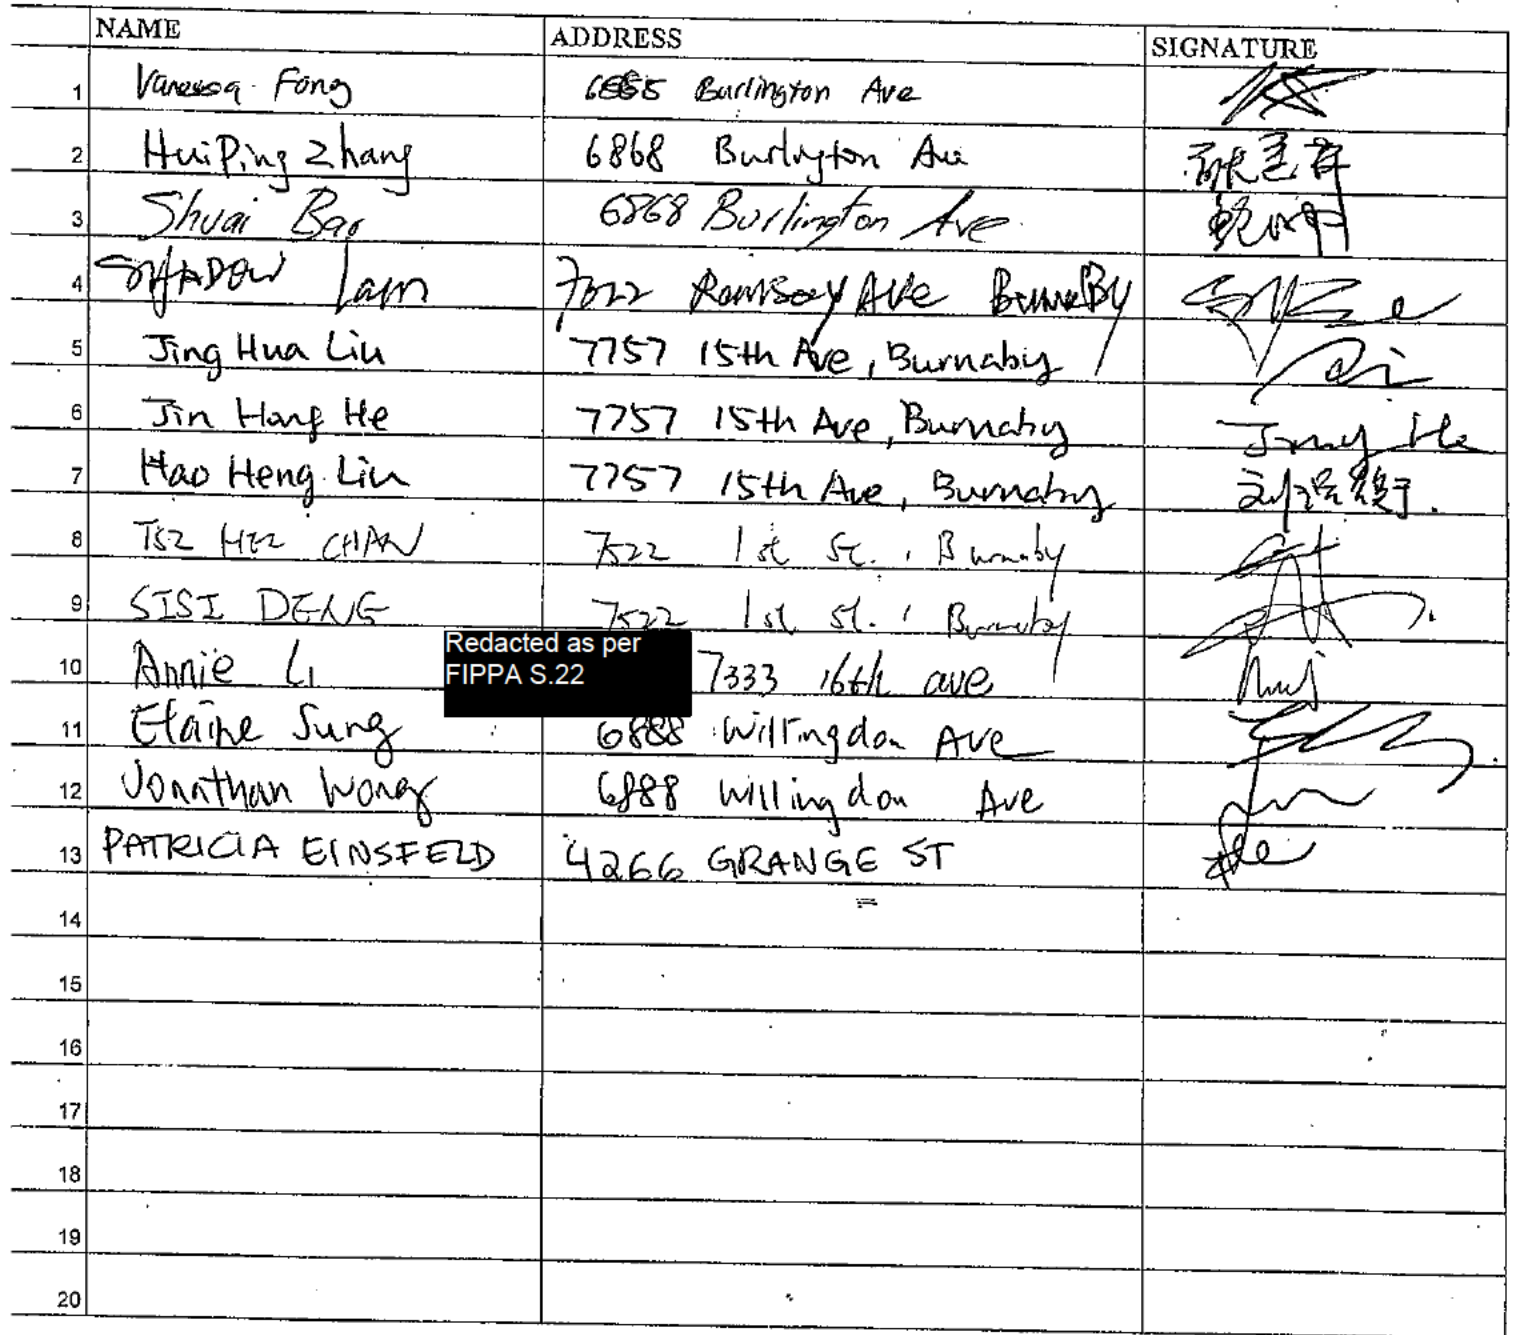 NAME ADDRESS SIGNATURE
1 Vanessa Fong Burlington Ave
2 HuiPing Zhang 6868 Burlington Ave
3 Shuai Bao 6868 Burlington Ave
4 SHADOW Lam 7022 Ramsay Ave Burnaby
5 Jing Hua Liu 7757 15th Ave, Burnaby
6 Jin Hong He 7757 15th Ave, Burnaby
7 Hao Heng Liu 7757 15th Ave, Burnaby
8 TSZ HEI CHAN 7522 1st St., Burnaby
9 SISI DENG 7522 1st St., Burnaby
Redacted as per
FIPPA S.22
10 Annie Li 7333 16th ave
11 Elaine Sung 6888 Willingdon Ave
12 Jonathan Wong 6888 Willingdon Ave
13 PATRICIA EINSFELD 4266 GRANGE ST
14
15
16
17
18
19
20